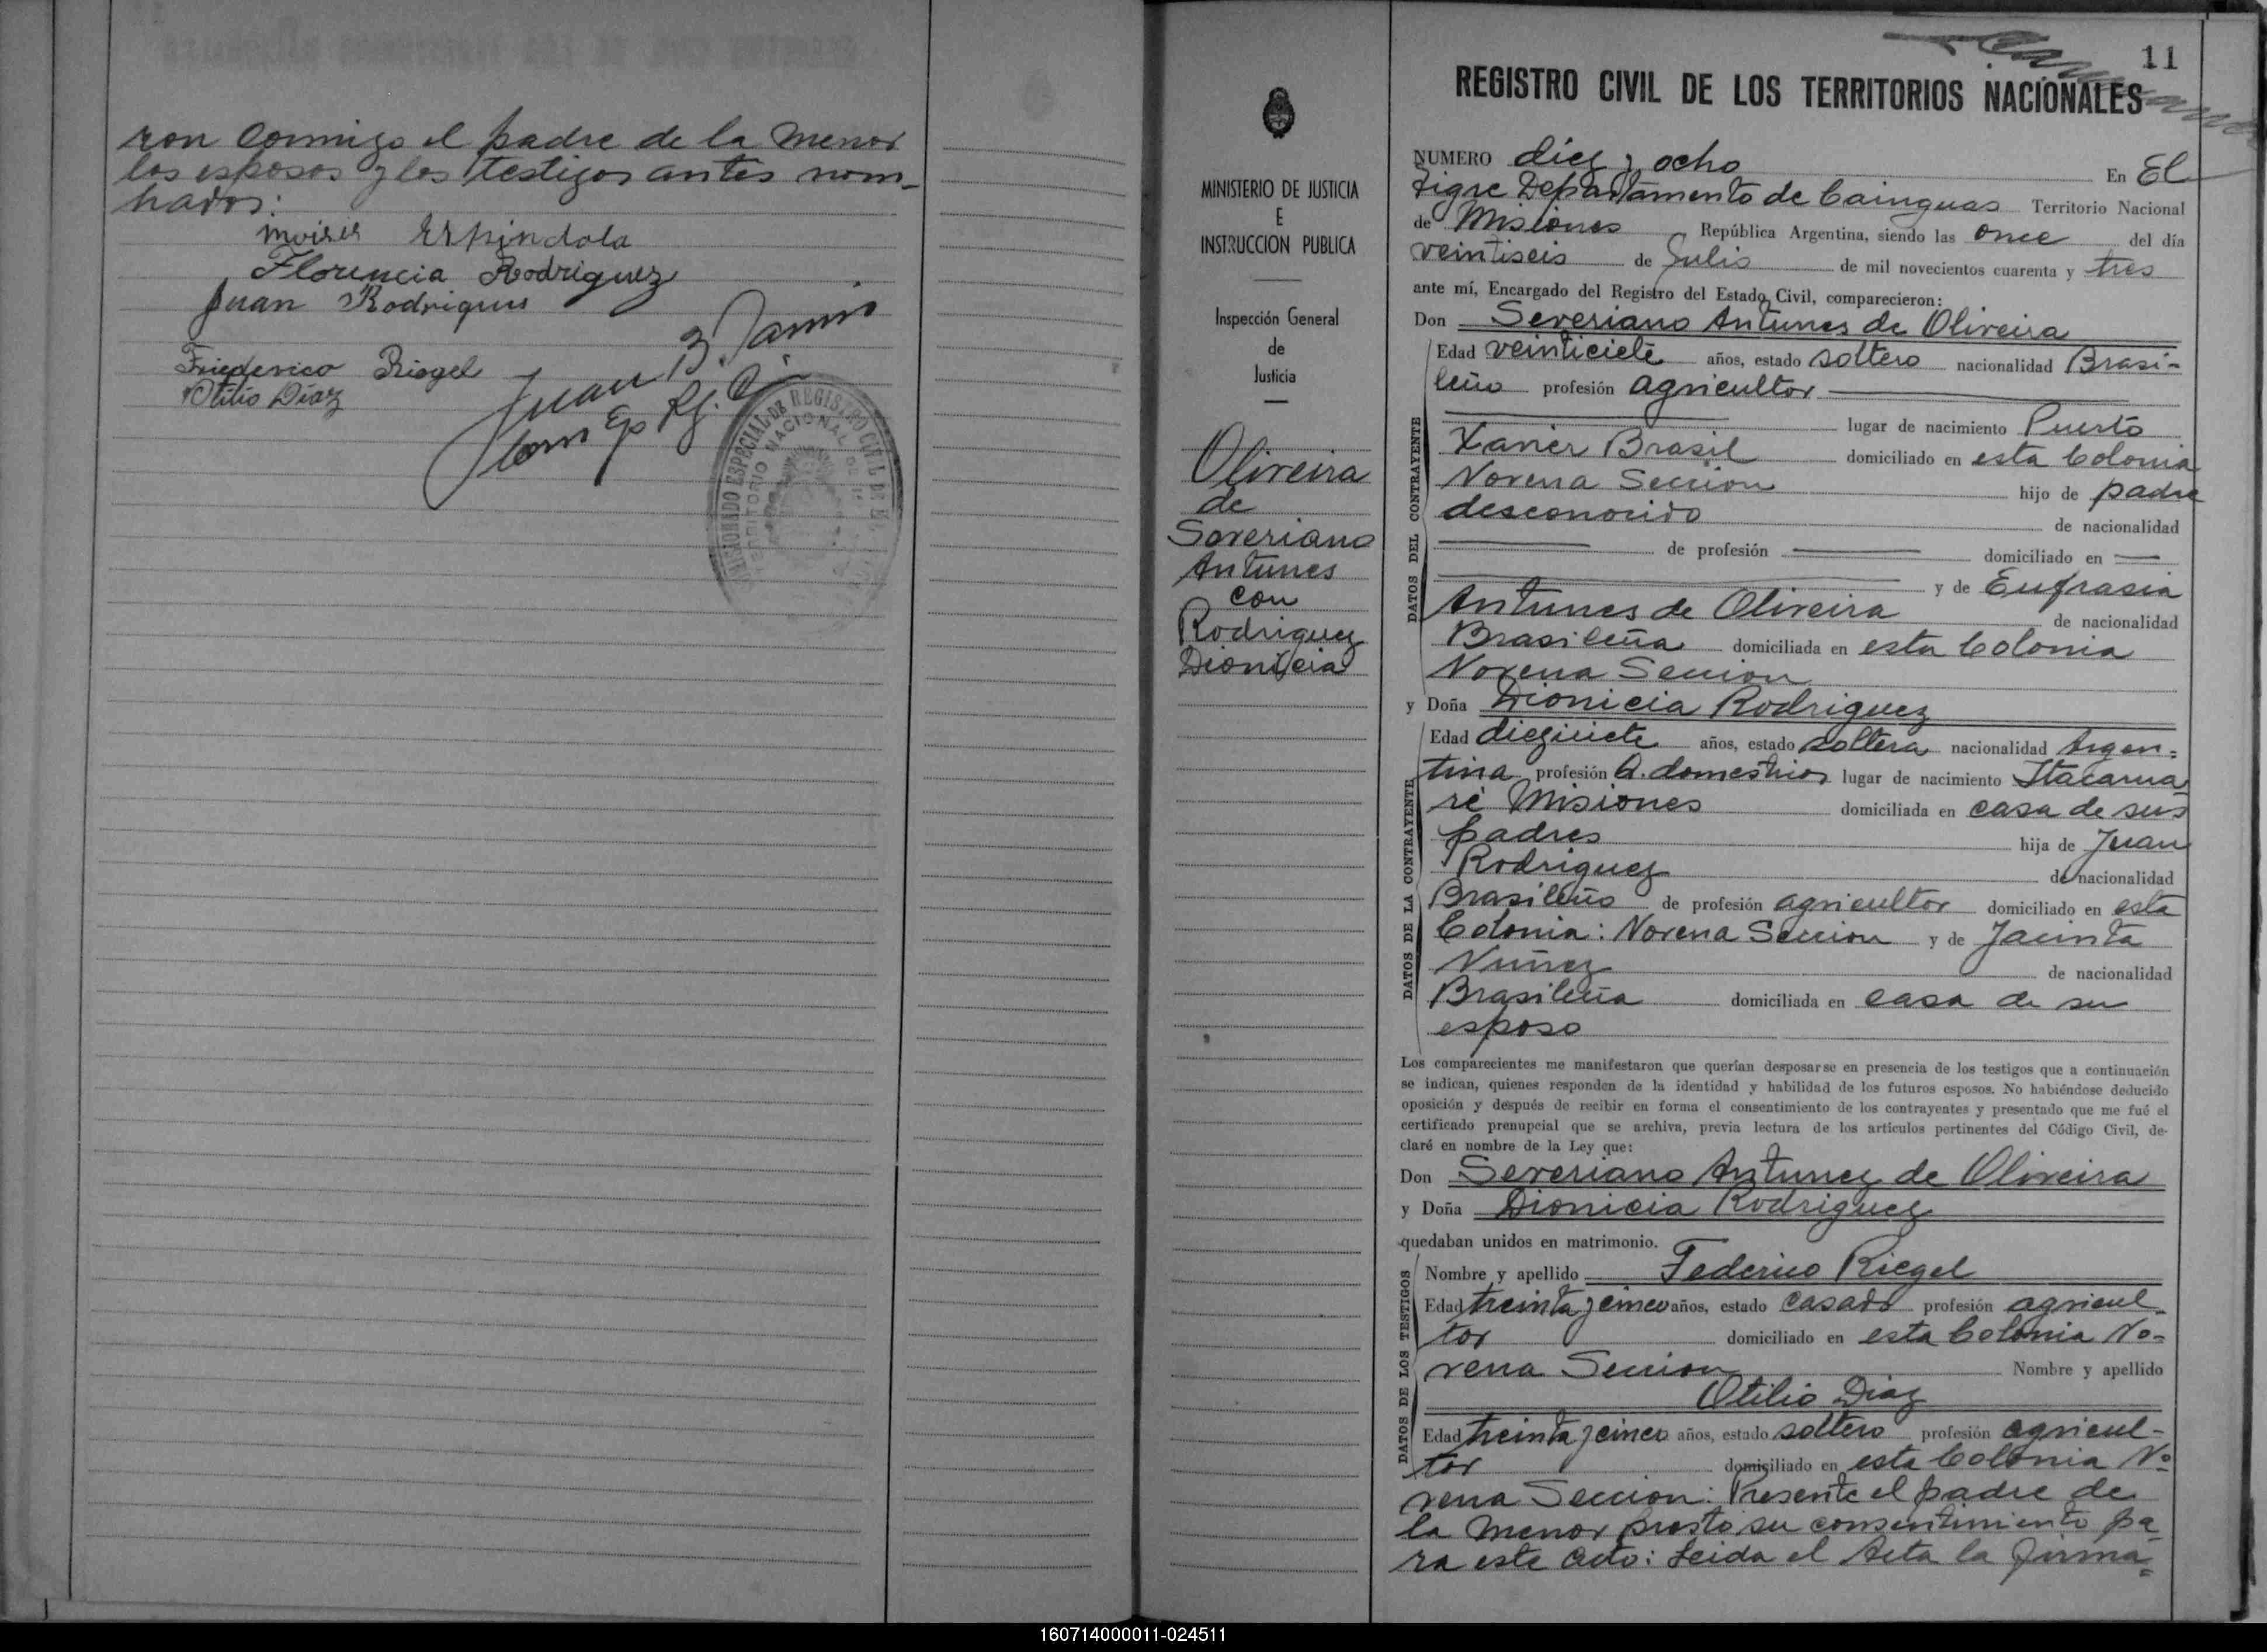 ron conmigo el padre de la menor
los esposos y los testigos antes nom-
brados:
Moises Espindola
Florencia Rodriguez
Juan Rodrigues
Friederico Riegel
Otilio Diaz
Juan B.
COMISIONADO ESPECIAL DE REGISTRO CIVIL DE EL
TERRITORIO NACIONAL
MINISTERIO DE JUSTICIA
E
INSTRUCCION PUBLICA
Inspección General
de
Justicia
Oliveira
de
Severiano
Antunes
con
Rodriguez
Dionicia
11
REGISTRO CIVIL DE LOS TERRITORIOS NACIONALES
NUMERO diez y ocho En El
Tigre Departamento de Cainguas Territorio Nacional
de Misiones República Argentina, siendo las once del día
veintiseis de Julio de mil novecientos cuarenta y tres
ante mí, Encargado del Registro del Estado Civil, comparecieron:
Don Severiano Antunes de Oliveira
DATOS DEL CONTRAYENTE
Edad veinticiete años, estado soltero nacionalidad Brasi-
leño profesión agricultor
lugar de nacimiento Puerto
Xavier Brasil domiciliado en esta Colonia
Novena Seccion hijo de padre
desconocido de nacionalidad
de profesión domiciliado en
y de Eufrasia
Antunes de Oliveira de nacionalidad
Brasileña domiciliada en esta Colonia
Novena Seccion
y Doña Dionicia Rodriguez
DATOS DE LA CONTRAYENTE
Edad dieziciete años, estado soltera nacionalidad Argen=
tina profesión Q. domesticos lugar de nacimiento Itacarua
ré Misiones domiciliada en casa de sus
padres hija de Juan
Rodriguez de nacionalidad
Brasileño de profesión agricultor domiciliado en esta
Colonia: Novena Seccion y de Jacinta
Nuñez de nacionalidad
Brasileña domiciliada en casa de su
esposo
Los comparecientes me manifestaron que querían desposarse en presencia de los testigos que a continuación
se indican, quienes responden de la identidad y habilidad de los futuros esposos. No habiéndose deducido
oposición y después de recibir en forma el consentimiento de los contrayentes y presentado que me fué el
certificado prenupcial que se archiva, previa lectura de los artículos pertinentes del Código Civil, de-
claré en nombre de la Ley que:
Don Severiano Antunez de Oliveira
y Doña Dionicia Rodriguez
quedaban unidos en matrimonio.
DATOS DE LOS TESTIGOS
Nombre y apellido Federico Riegel
Edad treinta y cinco años, estado casado profesión agricul-
tor domiciliado en esta Colonia No-
vena Seccion Nombre y apellido
Otilio Diaz
Edad treinta y cinco años, estado soltero profesión agricul-
tor domiciliado en esta Colonia No
vena Seccion: Presente el padre de
la menor presto su consentimiento pa-
ra este acto: Leida el Acta la firma=
160714000011-024511